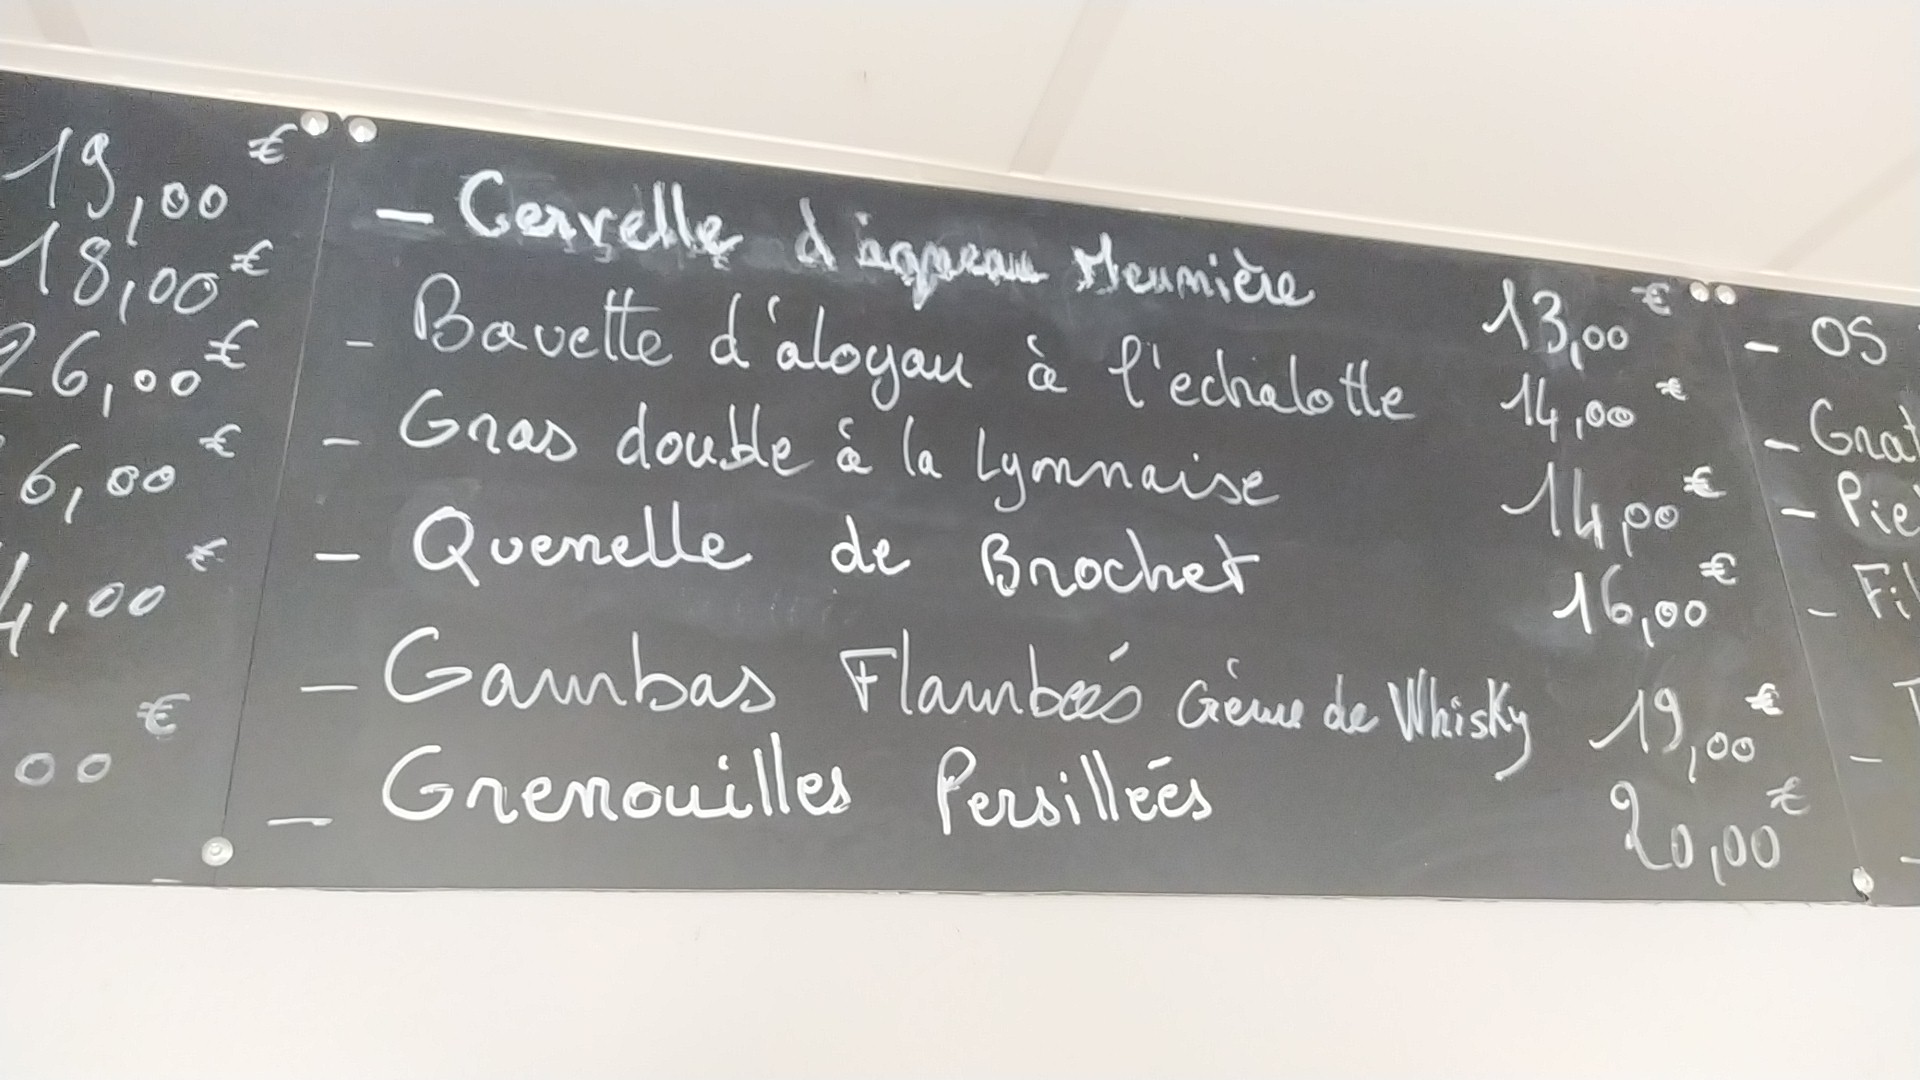 19,00 €
18,00 €
26,00 €
6,00 €
4,00 €
00 €
- Cervelle d'agneau Meunière 13,00 €
- Bavette d'aloyau à l'echalotte 14,00 €
- Gras double à la Lyonnaise 14,00 €
- Quenelle de Brochet 16,00 €
- Gambas Flambés Crème de Whisky 19,00 €
- Grenouilles Persillées 20,00 €
- OS
- Grat
- Pie
- Fil